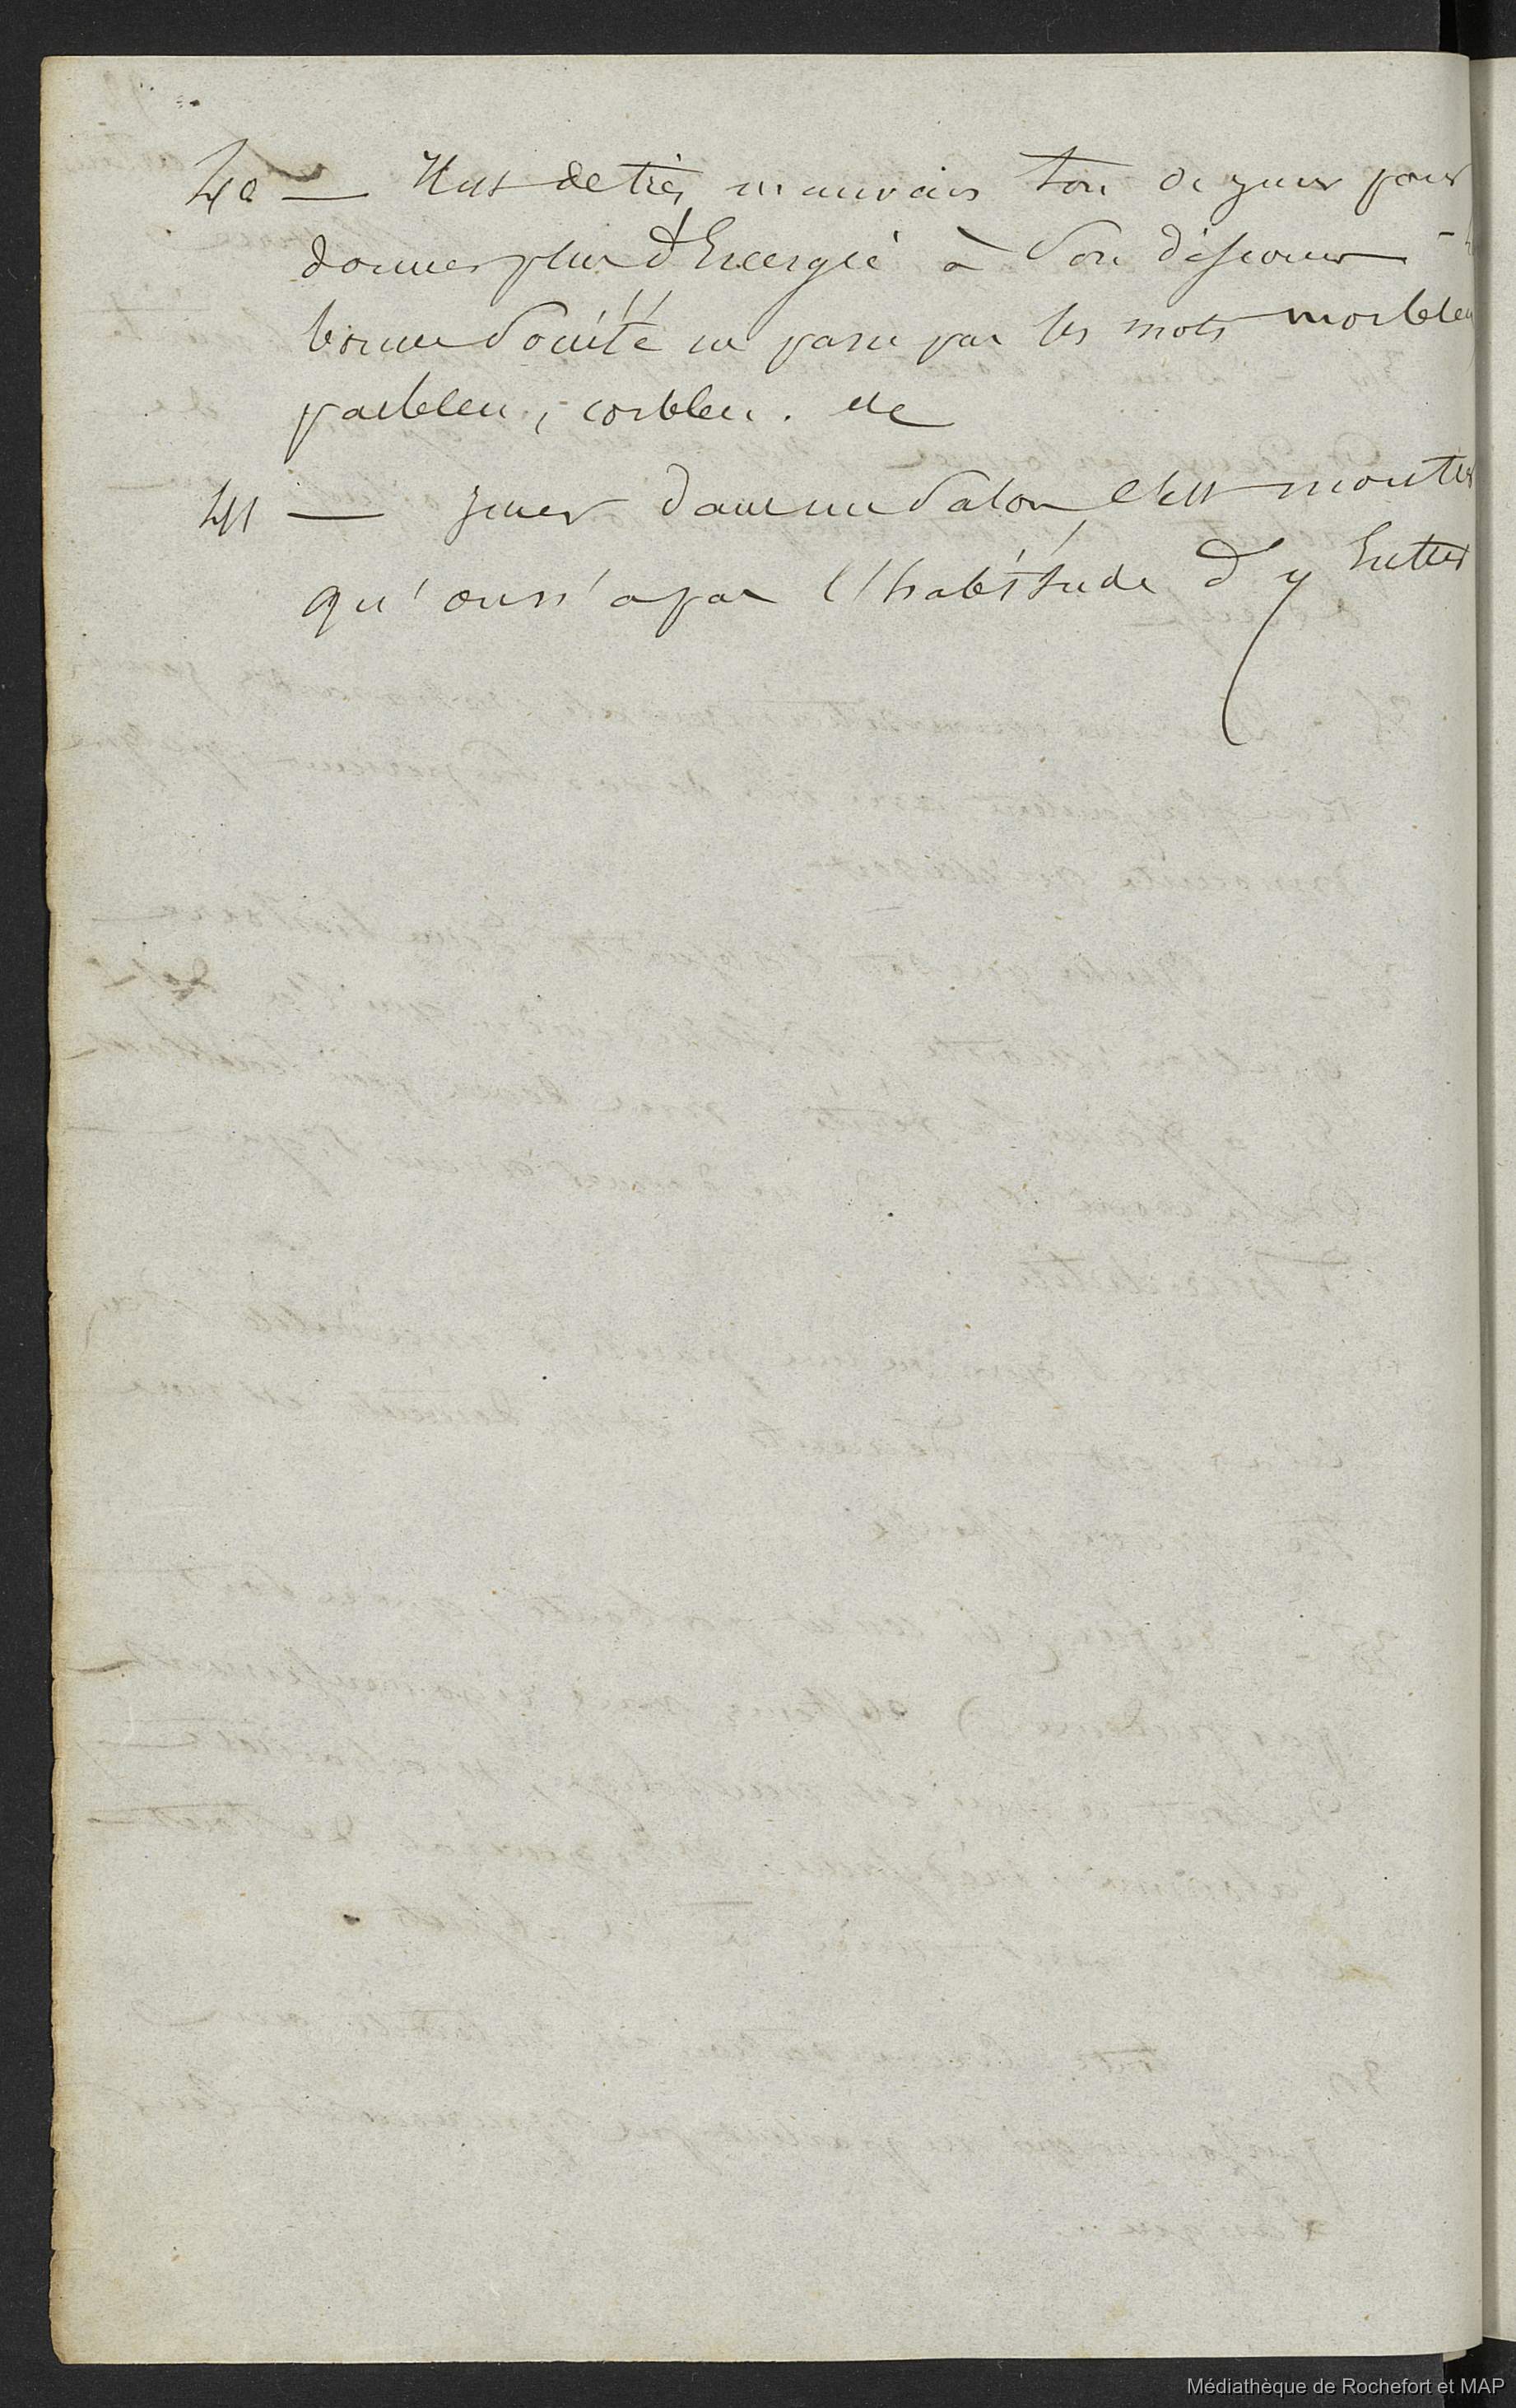 40 — Il est de très mauvais ton de jurer pour
donner plus d'Energie à son discours -
bonne société ne passe pas les mots morbleu
parbleu, corbleu. etc
41 — jurer dans un salon c'est montrer
qu'on n'a pas l'habitude d'y Entrer
Médiathèque de Rochefort et MAP